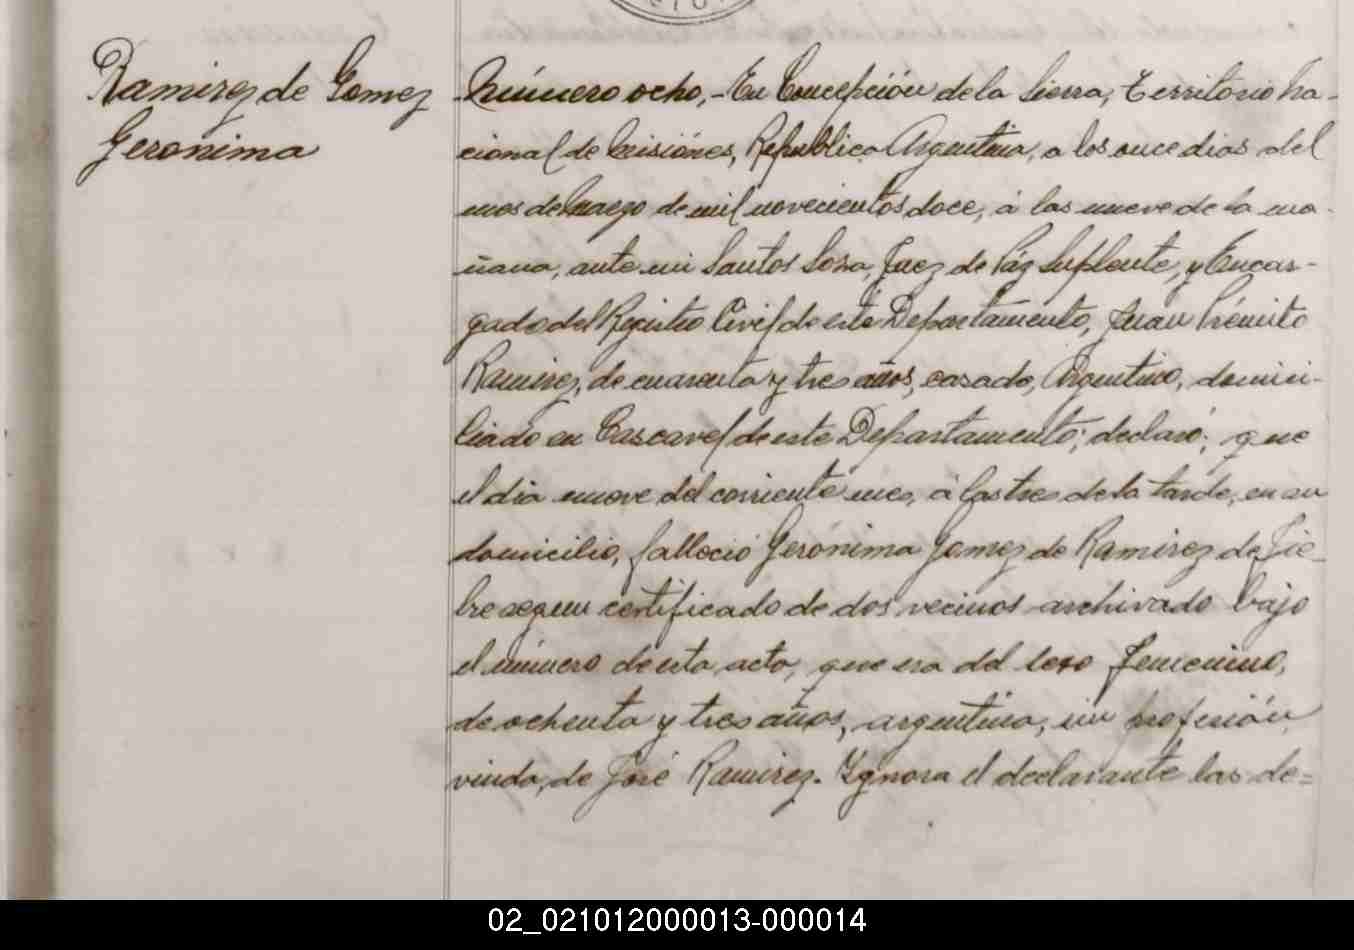 Ramirez de Gomez
Geronima
Número ocho,-En Concepción de la Sierra, Territorio Na-
cional de Misiónes, Republica Argentina, a los once dias del
mes de Marzo de mil novecientos doce, á las nueve de la ma-
ñana, ante mi Santos Sosa, Juez de Páz Suplente, y Encar-
gado del Registro Civil de este Departamento, Juan
Ramirez, de cuarenta y tres años, casado, Argentino, domici-
liado en Cascavel de este Departamento; declaró; que
el dia nueve del corriente mes, á las tres de la tarde, en su
domicilio, falleció Gerónima Gomez de Ramirez de Fie-
bre segun certificado de dos vecinos archivado bajo
el número de esta acta, que era del sexo femenino,
de ochenta y tres años, argentina, sin profesión,
viuda, de José Ramirez. Ygnora el declarante las de=
02_021012000013-000014